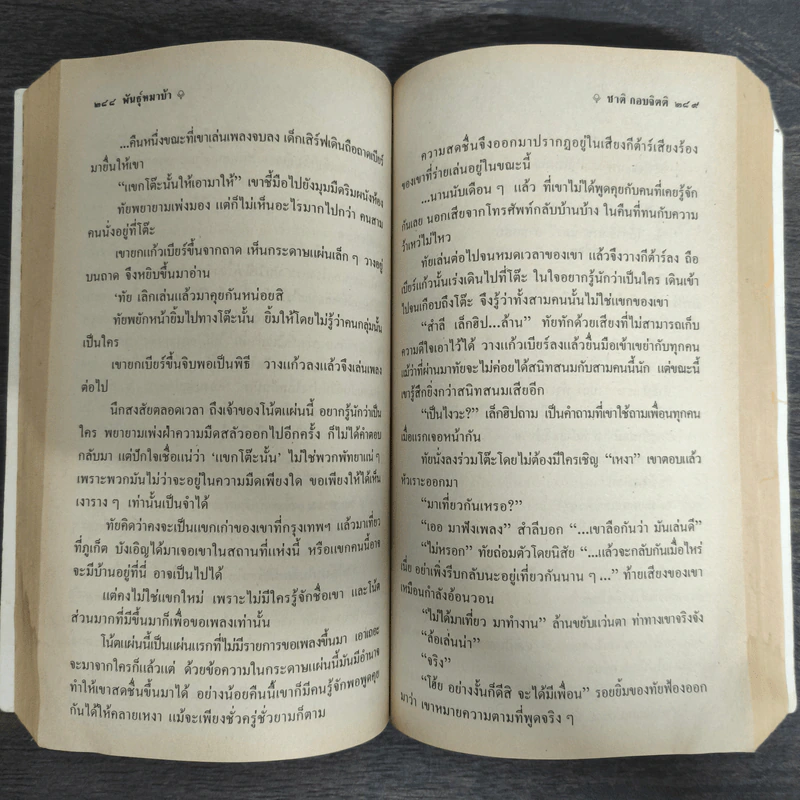 ๒๔๘ พันธุ์หมาบ้า
...คืนหนึ่งขณะที่เขาเล่นเพลงจบลง เด็กเสิร์ฟเดินถือถาดเบียร์
มายื่นให้เขา
“แขกโต๊ะนั้นให้เอามาให้” เขาชี้มือไปยังมุมมืดริมผนังห้อง
ทัยพยายามเพ่งมอง แต่ก็ไม่เห็นอะไรมากไปกว่า คนสาม
คนนั่งอยู่ที่โต๊ะ
เขายกแก้วเบียร์ขึ้นจากถาด เห็นกระดาษแผ่นเล็ก ๆ วางอยู่
บนถาด จึงหยิบขึ้นมาอ่าน
‘ทัย เลิกเล่นแล้วมาคุยกันหน่อยสิ
ทัยพยักหน้ายิ้มไปทางโต๊ะนั้น ยิ้มให้โดยไม่รู้ว่าคนกลุ่มนั้น
เป็นใคร
เขายกเบียร์ขึ้นจิบพอเป็นพิธี วางแก้วลงแล้วจึงเล่นเพลง
ต่อไป
นึกสงสัยตลอดเวลา ถึงเจ้าของโน้ตแผ่นนี้ อยากรู้นักว่าเป็น
ใคร พยายามเพ่งฝ่าความมืดสลัวออกไปอีกครั้ง ก็ไม่ได้คำตอบ
กลับมา แต่ปักใจเชื่อแน่ว่า ‘แขกโต๊ะนั้น’ ไม่ใช่พวกพัทยาแน่ ๆ
เพราะพวกมันไม่ว่าจะอยู่ในความมืดเพียงใด ขอเพียงให้ได้เห็น
เงาราง ๆ เท่านั้นเป็นจำได้
ทัยคิดว่าคงจะเป็นแขกเก่าของเขาที่กรุงเทพฯ แล้วมาเที่ยว
ที่ภูเก็ต บังเอิญได้มาเจอเขาในสถานที่แห่งนี้ หรือแขกคนนี้อาจ
จะมีบ้านอยู่ที่นี่ อาจเป็นไปได้
แต่คงไม่ใช่แขกใหม่ เพราะไม่มีใครรู้จักชื่อเขา และโน้ต
ส่วนมากที่มีขึ้นมาก็เพื่อขอเพลงเท่านั้น
โน้ตแผ่นนี้เป็นแผ่นแรกที่ไม่มีรายการขอเพลงขึ้นมา เอาเถอะ
จะมาจากใครก็แล้วแต่ ด้วยข้อความในกระดาษแผ่นนี้มันมีอำนาจ
ทำให้เขาสดชื่นขึ้นมาได้ อย่างน้อยคืนนี้เขาก็มีคนรู้จักพอพูดคุย
กันได้ให้คลายเหงา แม้จะเพียงชั่วครู่ชั่วยามก็ตาม
ชาติ กอบจิตติ ๒๔๙
ความสดชื่นจึงออกมาปรากฏอยู่ในเสียงกีต้าร์เสียงร้อง
ของเขาที่ร่ายเล่นอยู่ในขณะนี้
...นานนับเดือน ๆ แล้ว ที่เขาไม่ได้พูดคุยกับคนที่เคยรู้จัก
กันเลย นอกเสียจากโทรศัพท์กลับบ้านบ้าง ในคืนที่ทนกับความ
ว้าเหว่ไม่ไหว
ทัยเล่นต่อไปจนหมดเวลาของเขา แล้วจึงวางกีต้าร์ลง ถือ
เบียร์แก้วนั้นเร่งเดินไปที่โต๊ะ ในใจอยากรู้นักว่าเป็นใคร เดินเข้า
ไปจนเกือบถึงโต๊ะ จึงรู้ว่าทั้งสามคนนั้นไม่ใช่แขกของเขา
“สำลี เล็กฮิป...ล้าน” ทัยทักด้วยเสียงที่ไม่สามารถเก็บ
ความดีใจเอาไว้ได้ วางแก้วเบียร์ลงแล้วยื่นมือเข้าเขย่ากับทุกคน
แม้ว่าที่ผ่านมาทัยจะไม่ค่อยได้สนิทสนมกับสามคนนี้นัก แต่ขณะนี้
เขารู้สึกยิ่งกว่าสนิทสนมเสียอีก
“เป็นไงวะ?” เล็กฮิปถาม เป็นคำถามที่เขาใช้ถามเพื่อนทุกคน
เมื่อแรกเจอหน้ากัน
ทัยนั่งลงร่วมโต๊ะโดยไม่ต้องมีใครเชิญ “เหงา” เขาตอบแล้ว
หัวเราะออกมา
“มาเที่ยวกันเหรอ?”
“เออ มาฟังเพลง” สำลีบอก “...เขาลือกันว่า มันเล่นดี”
“ไม่หรอก” ทัยถ่อมตัวโดยนิสัย “...แล้วจะกลับกันเมื่อไหร่
เนี่ย อย่าเพิ่งรีบกลับนะอยู่เที่ยวกันนาน ๆ ...” ท้ายเสียงของเขา
เหมือนกำลังอ้อนวอน
“ไม่ได้มาเที่ยว มาทำงาน” ล้านขยับแว่นตา ท่าทางเขาจริงจัง
“ล้อเล่นน่า”
“จริง”
“โฮ้ย อย่างงั้นก็ดีสิ จะได้มีเพื่อน” รอยยิ้มของทัยฟ้องออก
มาว่า เขาหมายความตามที่พูดจริง ๆ